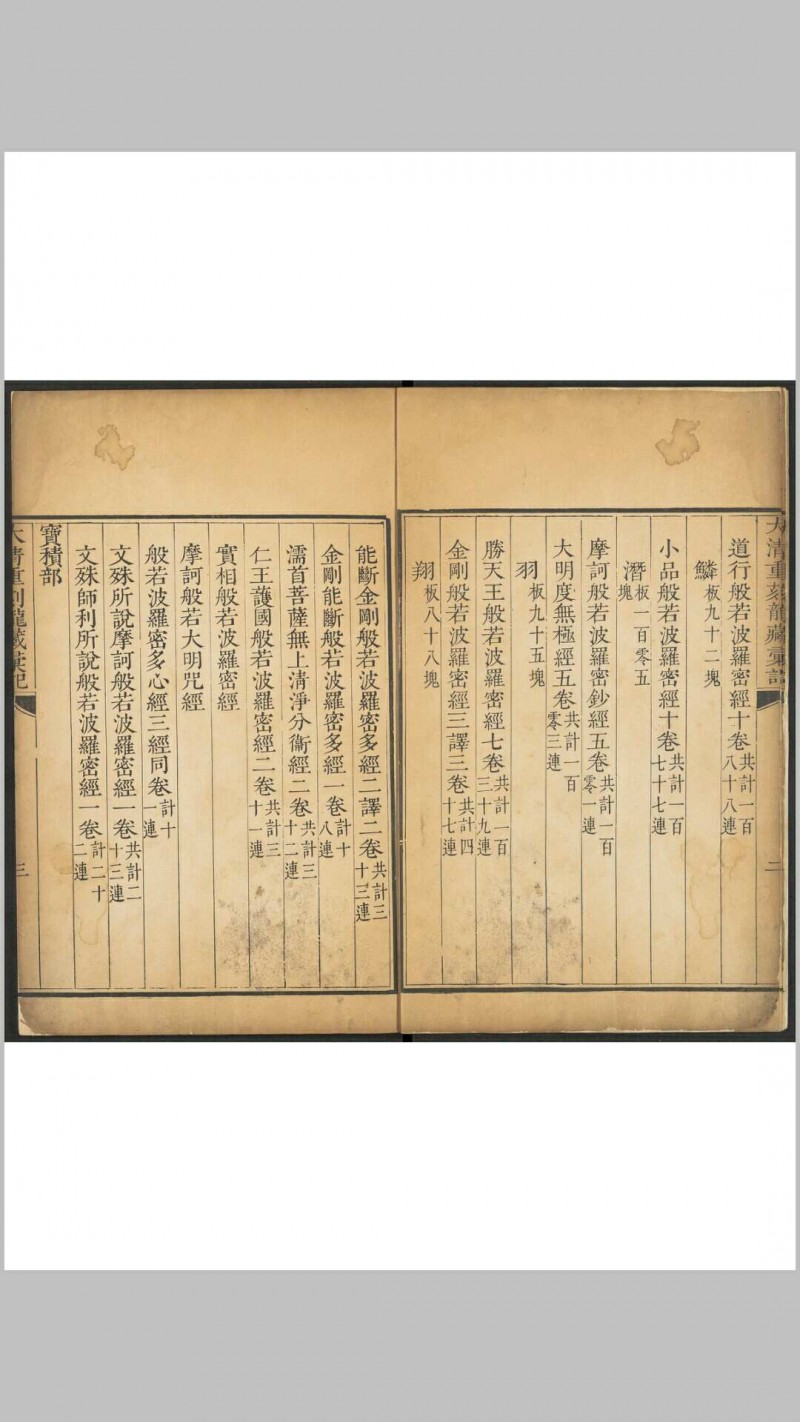 大清重刻龍藏彙記
二
道行般若波羅密經十卷共計一百八十八連
鱗板九十二塊
小品般若波羅密經十卷共計一百七十七連
潛板一百零五塊
摩訶般若波羅密鈔經五卷共計一百零一連
大明度無極經五卷共計一百零三連
羽板九十五塊
勝天王般若波羅密經七卷共計一百三十九連
金剛般若波羅密經三譯三卷共計四十七連
翔板八十八塊
能斷金剛般若波羅密多經二譯二卷共計三十三連
金剛能斷般若波羅密多經一卷計十八連
濡首菩薩無上清淨分衞經二卷共計三十二連
仁王護國般若波羅密經二卷共計三十一連
實相般若波羅密經
摩訶般若大明咒經
般若波羅密多心經三經同卷計十一連
文殊所說摩訶般若波羅密經一卷共計二十三連
文殊師利所說般若波羅密經一卷計二十二連
寶積部
大清重刻龍藏彙記
三